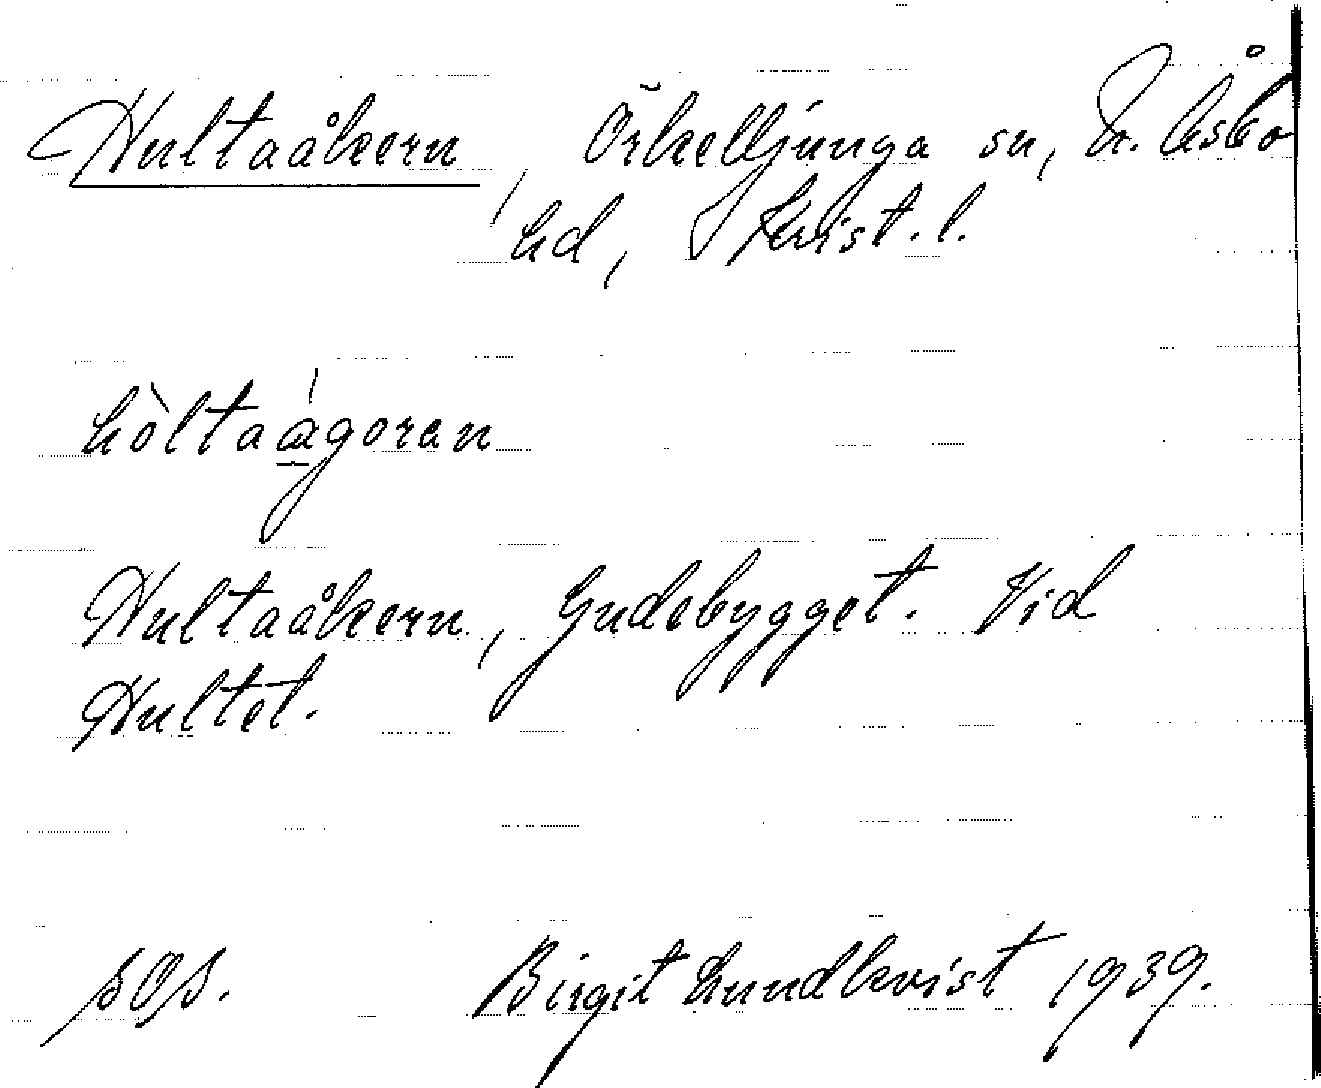 Hultaåkern, Örkelljunga sn, N. Åsbo
hd, Krist. l.
hòltaågoren
Hultaåkern, Gudebygget. Vid
Hultet.
sOs. Birgit Lundkvist 1939.